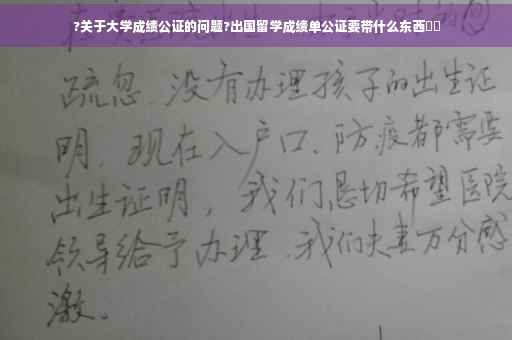 ?关于大学成绩公证的问题?出国留学成绩单公证要带什么东西
疏忽、没有办理孩子的出生证
明、现在入户口、防疫都需要
出生证明，我们恳切希望医院
领导给予办理、我们夫妻万分感
激。